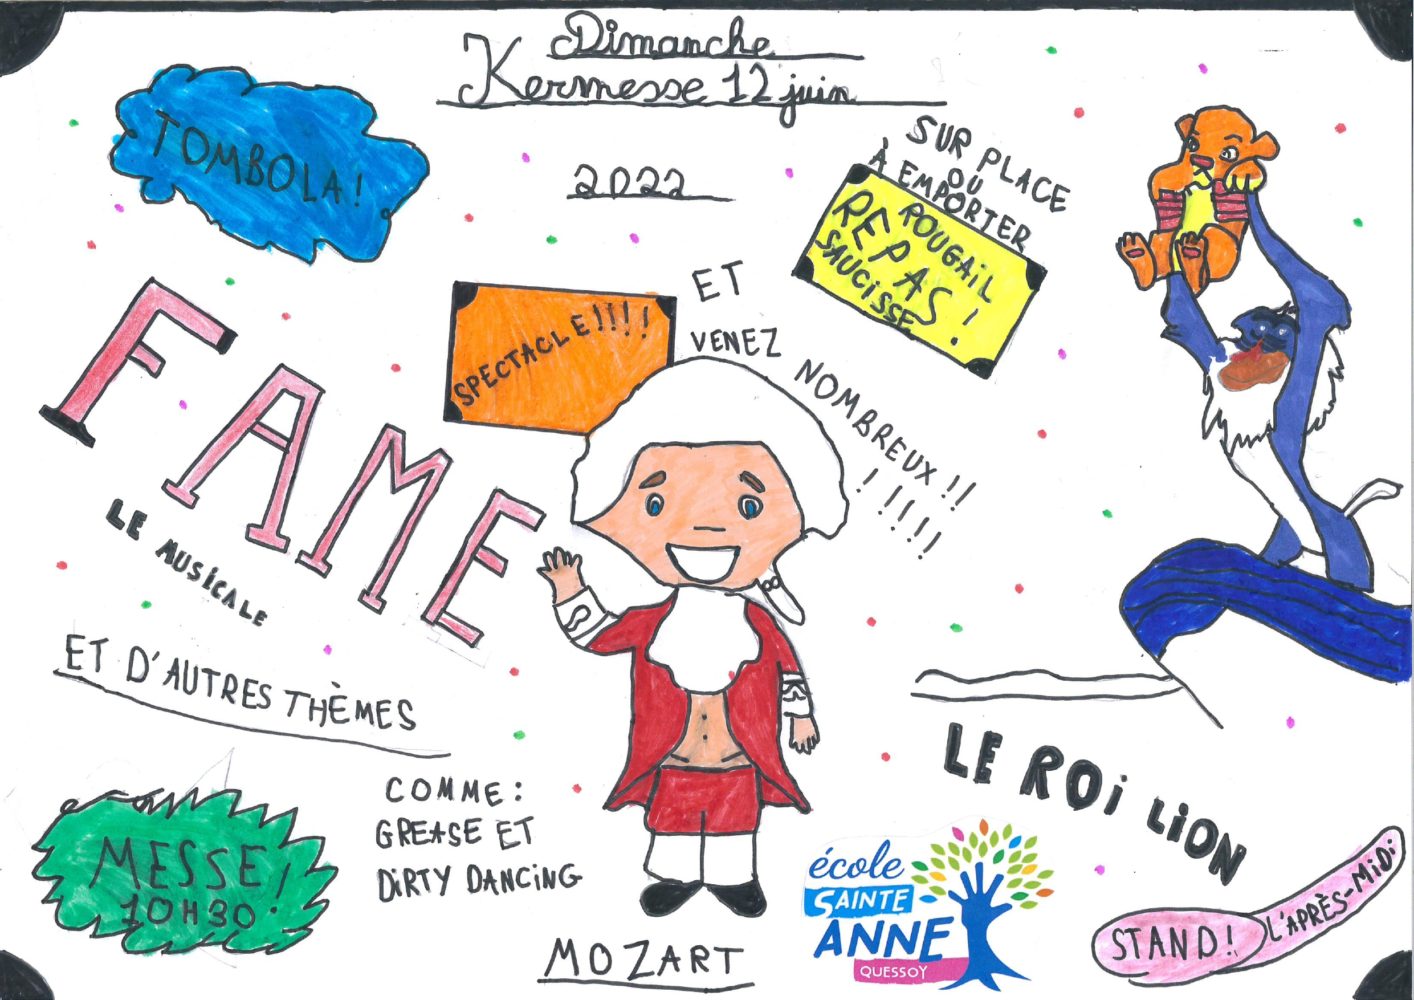 Dimanche
Kermesse 12 juin
2022
TOMBOLA!
SUR PLACE
OU
À EMPORTER
REPAS!
ROUGAiL
SAUCiSSE
SPECTACLE!!!!
ET
VENEZ
NOMBREUX!!
!!!!!
FAME
LE MUSiCALE
ET D'AUTRES THÈMES
COMME:
GREASE ET
DiRTY DANCiNG
MESSE!
10H30
MOZART
LE ROi LiON
école
SAINTE
ANNE
QUESSOY
STAND!
L'APRÈS-MiDi